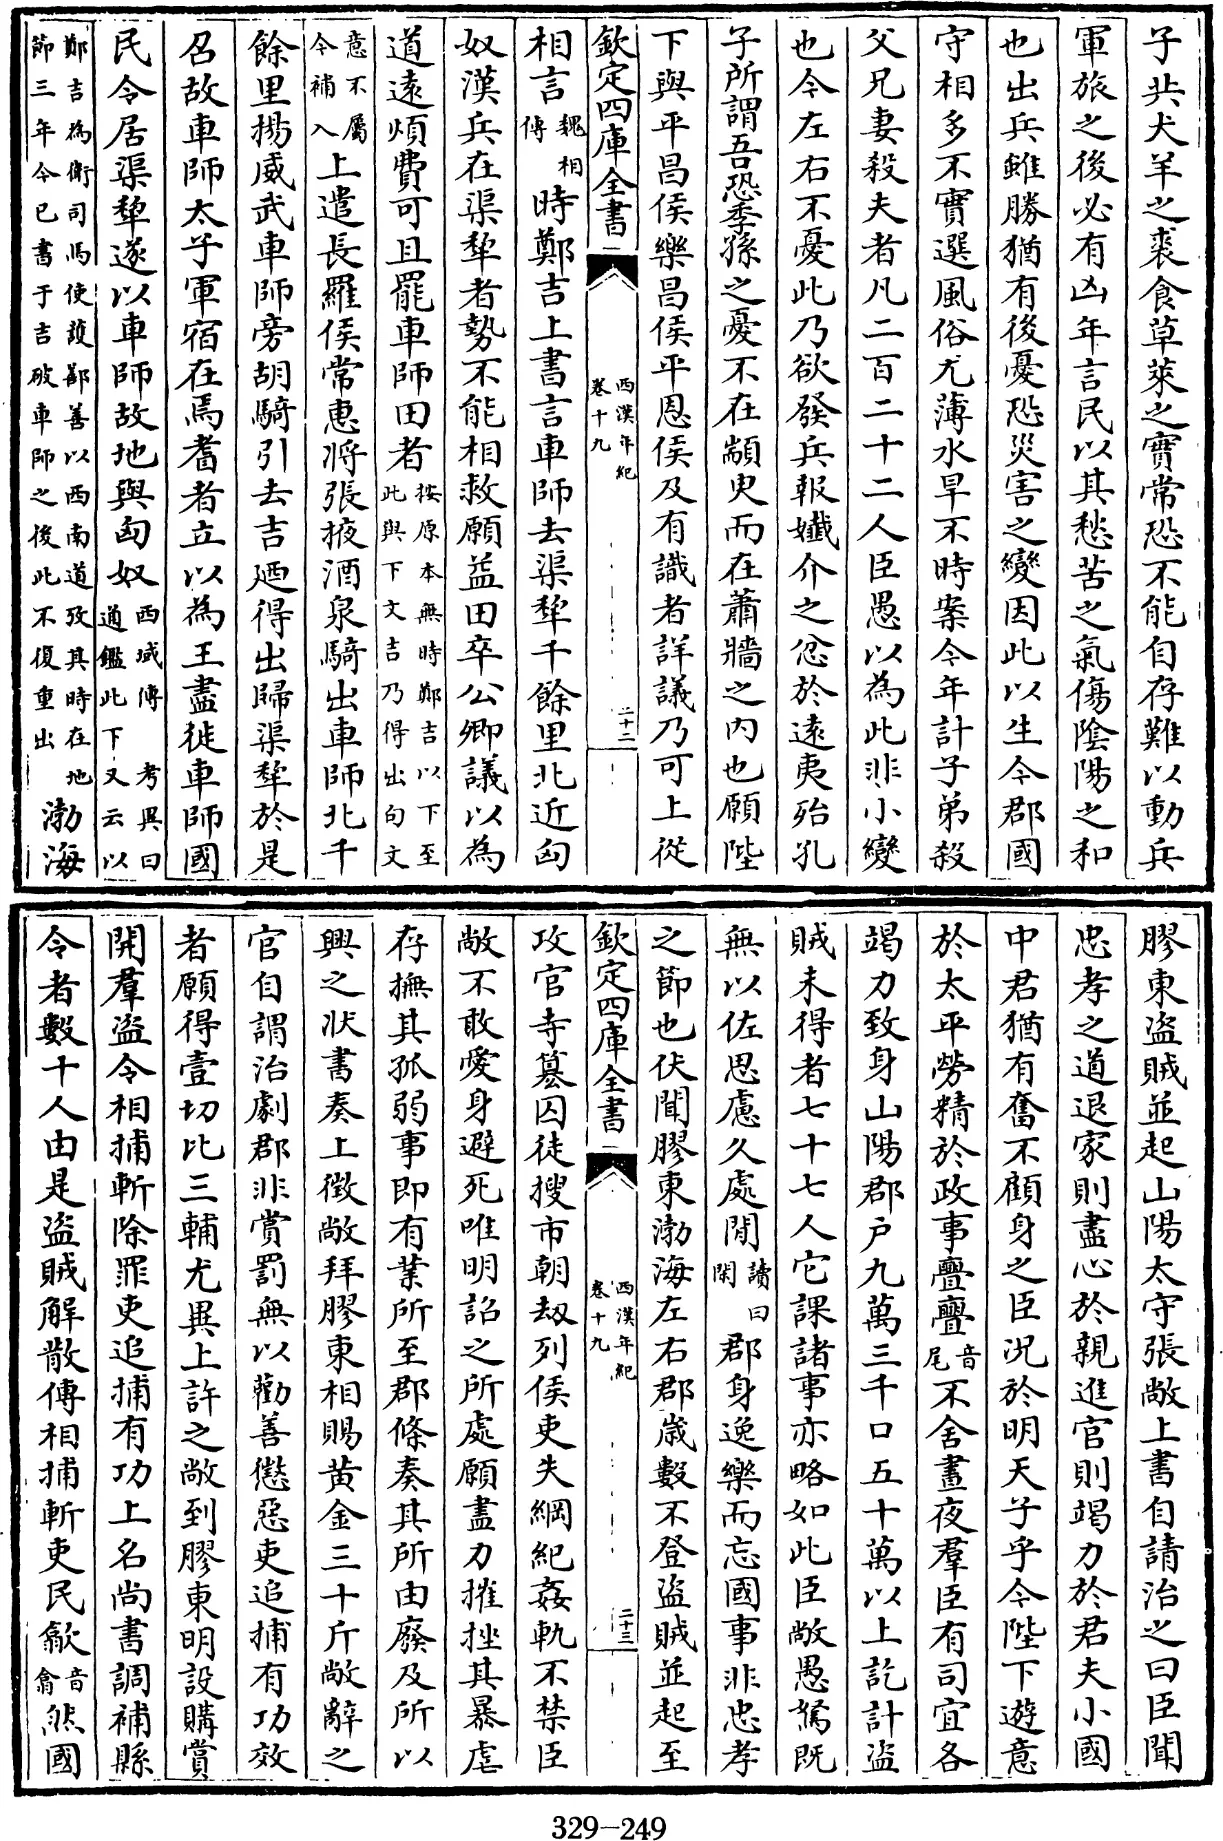 子共犬羊之裘食草萊之實常恐不能自存難以動兵
軍旅之後必有凶年言民以其愁苦之氣傷陰陽之和
也出兵雖勝猶有後憂恐災害之變因此以生今郡國
守相多不實選風俗尤薄水旱不時案今年計子弟殺
父兄妻殺夫者凡二百二十二人臣愚以為此非小變
也今左右不憂此乃欲發兵報孅介之忿於遠夷殆孔
子所謂吾恐季孫之憂不在顓臾而在蕭牆之内也願陛
下與平昌侯樂昌侯平恩侯及有識者詳議乃可上從
欽定四庫全書 西漢年紀 卷十九 二十二
相言魏相傳時鄭吉上書言車師去渠犂千餘里北近匈
奴漢兵在渠犂者勢不能相救願益田卒公卿議以為
道逺煩費可且罷車師田者按原本無時鄭吉以下至此與下文吉乃得出句文
意不屬今補入上遣長羅侯常惠將張掖酒泉騎出車師北千
餘里揚威武車師旁胡騎引去吉廼得出歸渠犂於是
召故車師太子軍宿在焉耆者立以為王盡徙車師國
民令居渠犂遂以車師故地與匈奴西域傳 考異曰通鑑此下又云以
鄭吉為衛司馬使護鄯善以西南道攷其時在地節三年今已書于吉破車師之後此不復重出渤海
膠東盗賊並起山陽太守張敞上書自請治之曰臣聞
忠孝之道退家則盡心於親進官則竭力於君夫小國
中君猶有奮不顧身之臣况於明天子乎今陛下遊意
於太平勞精於政事亹亹音尾不舍晝夜羣臣有司宜各
竭力致身山陽郡户九萬三千口五十萬以上訖計盗
賊未得者七十七人它課諸事亦略如此臣敞愚駑既
無以佐思慮久處閒讀曰閑郡身逸樂而忘國事非忠孝
之節也伏聞膠東渤海左右郡歲數不登盗賊並起至
欽定四庫全書 西漢年紀 卷十九 二十三
攻官寺簒囚徒搜市朝刼列侯吏失綱紀姦軌不禁臣
敞不敢愛身避死唯明詔之所處願盡力摧挫其暴虐
存撫其孤弱事即有業所至郡條奏其所由廢及所以
興之狀書奏上徵敞拜膠東相賜黄金三十斤敞辭之
官自謂治劇郡非賞罰無以勸善懲惡吏追捕有功效
者願得壹切比三輔尤異上許之敞到膠東明設購賞
開羣盗令相捕斬除罪吏追捕有功上名尚書調補縣
令者數十人由是盗賊解散傳相捕斬吏民歙音翕然國
329-249